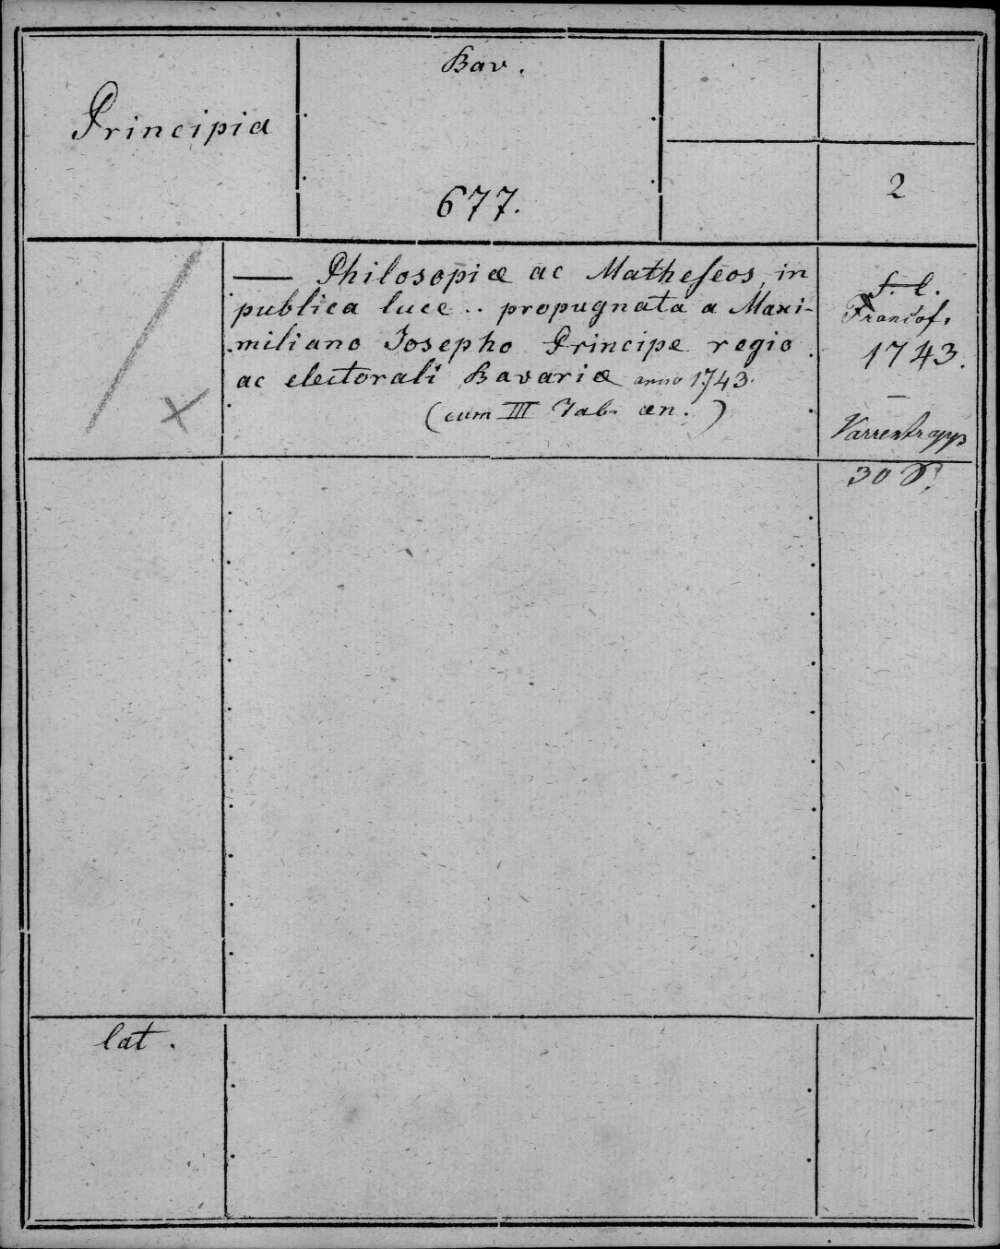 Bav.
Principia
677.
2
— Philosopiæ ac Matheseos, in
publica luce .. propugnata a Maxi-
miliano Josepho Principe regio
ac electorali Bavariæ anno 1743.
(cum III Tab. æn.)
s. l.
Francof.
1743.
Varrentrapp
30 S.
lat.